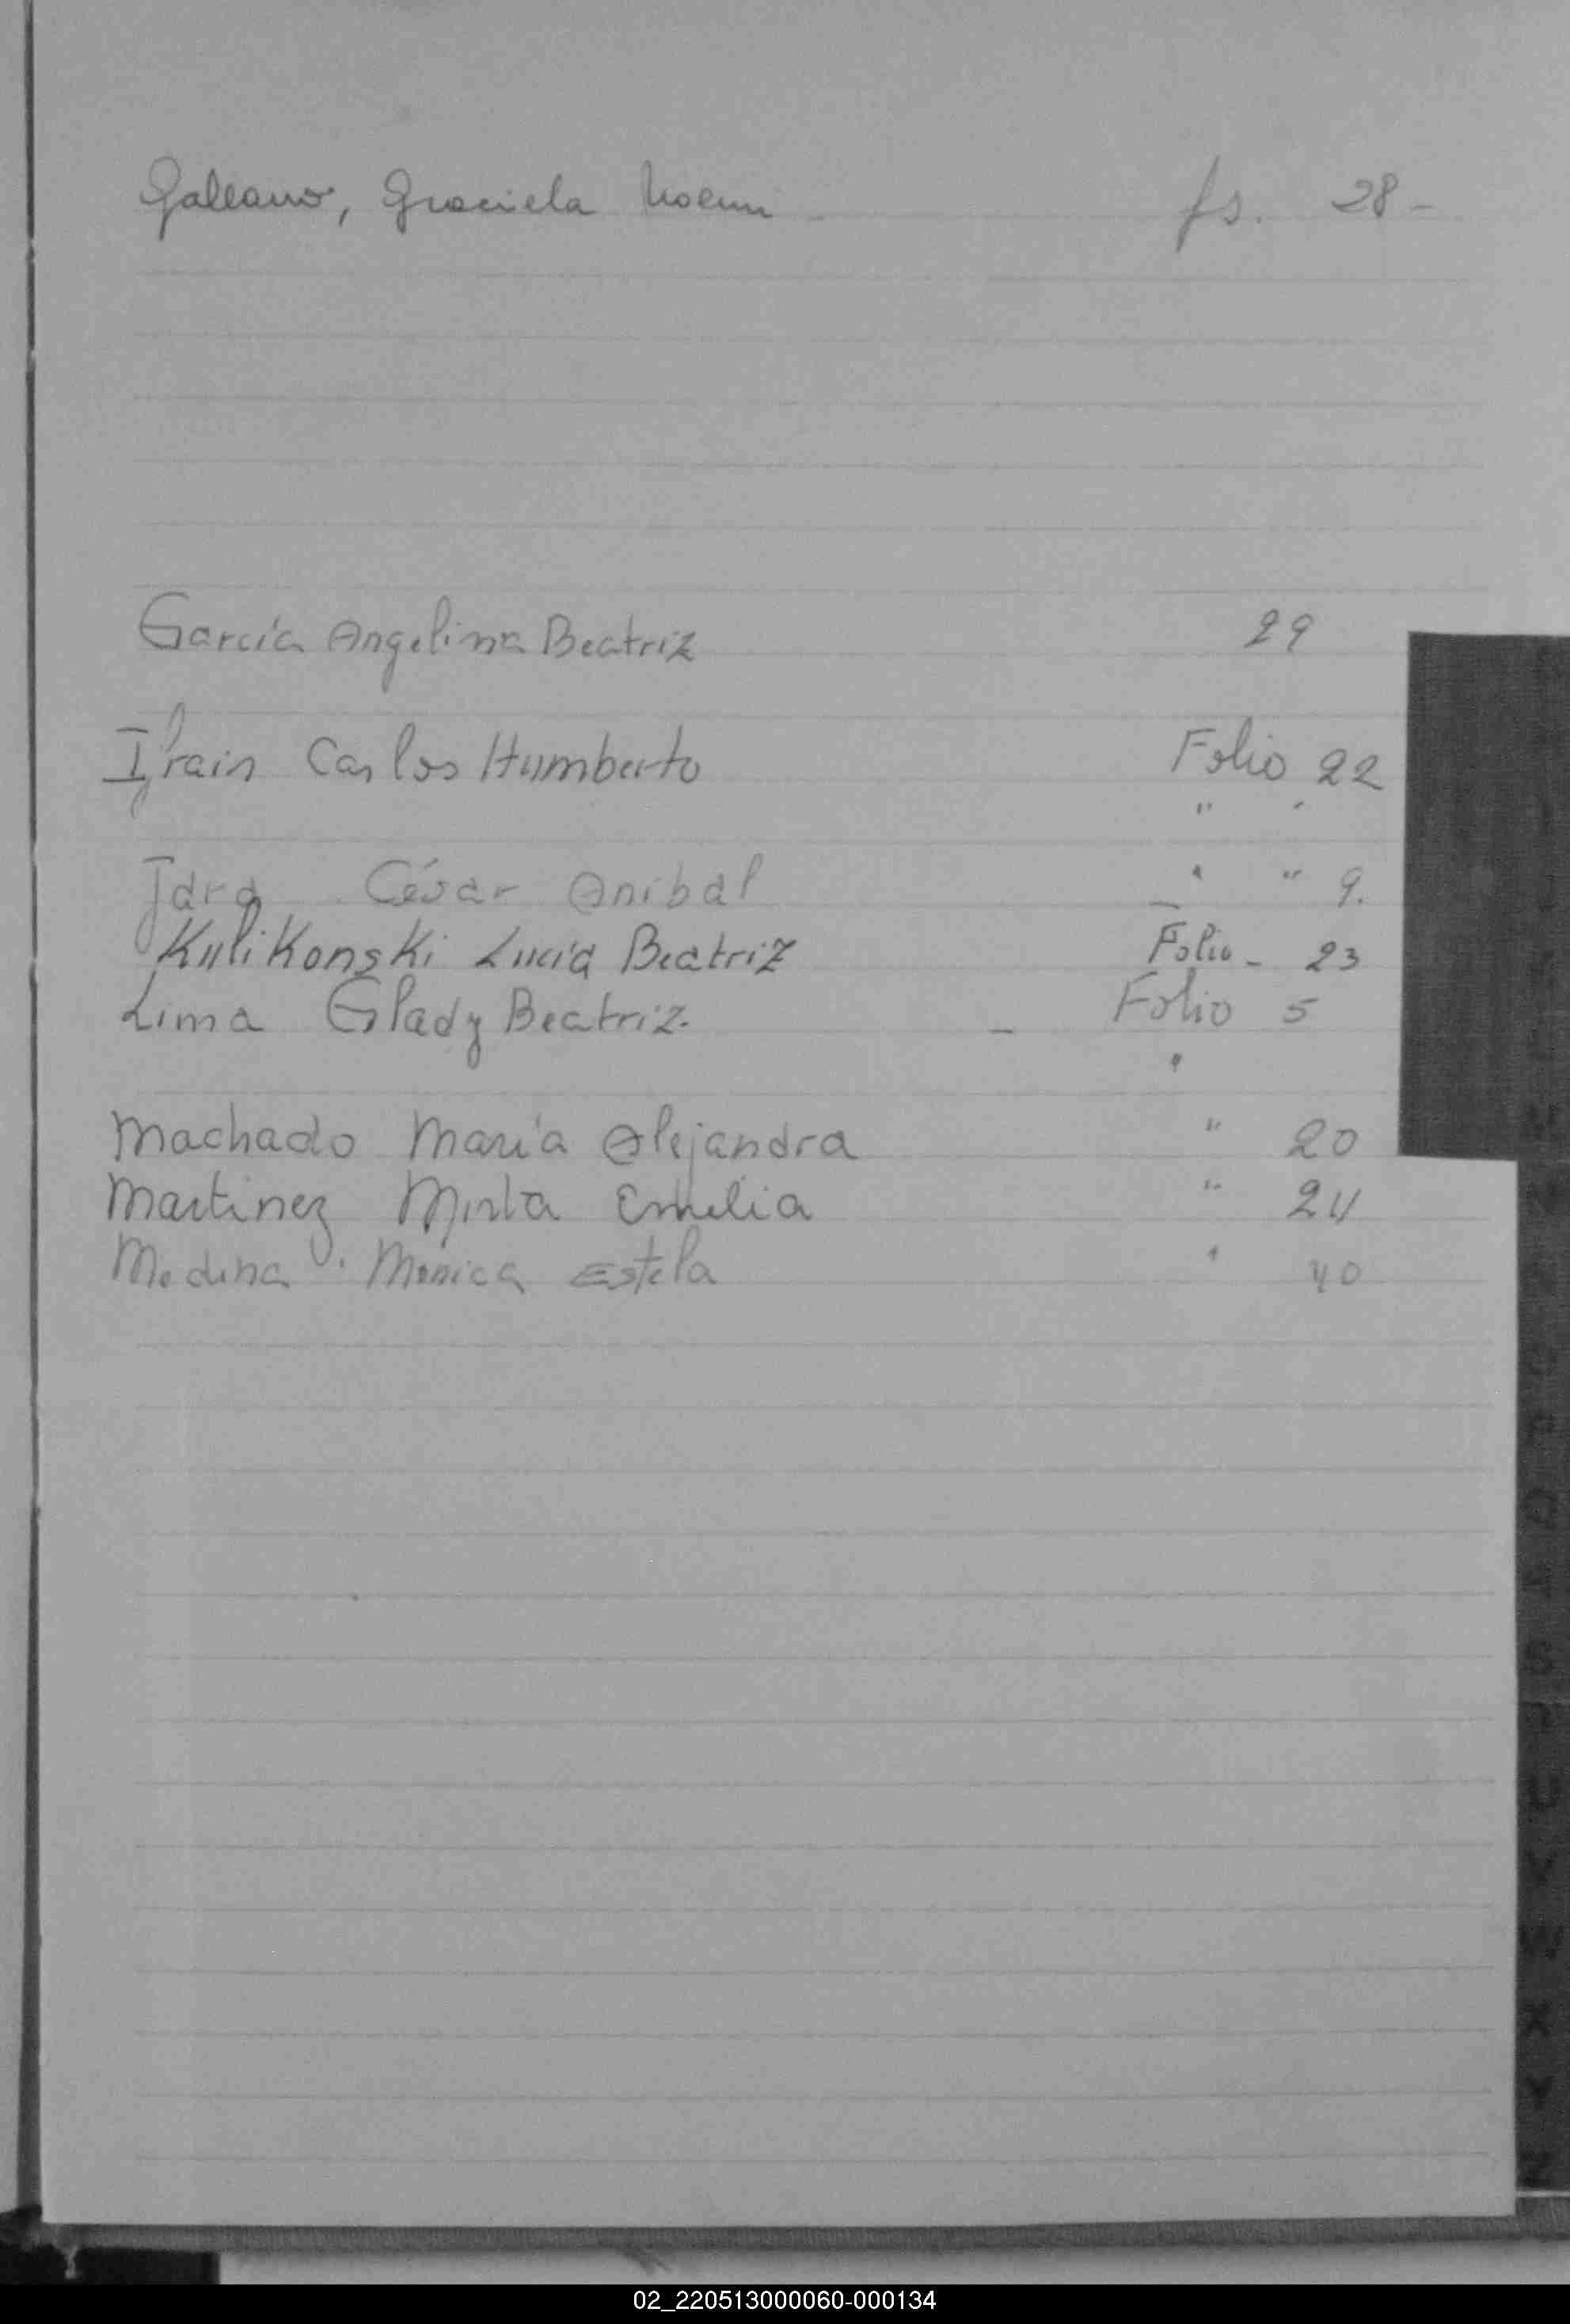 Galeano, Graciela Noemi fs. 28-
García Angelina Beatriz 29
Ifrain Carlos Humberto Folio 22
" "
Jara César Anibal " " 9.
Kulikonski Lucía Beatriz Folio - 23
Lima Glady Beatriz. - Folio 5
"
Machado María Alejandra " 20
Martinez Mirta Emilia " 24
Medina Mónica Estela " 40
02_220513000060-000134